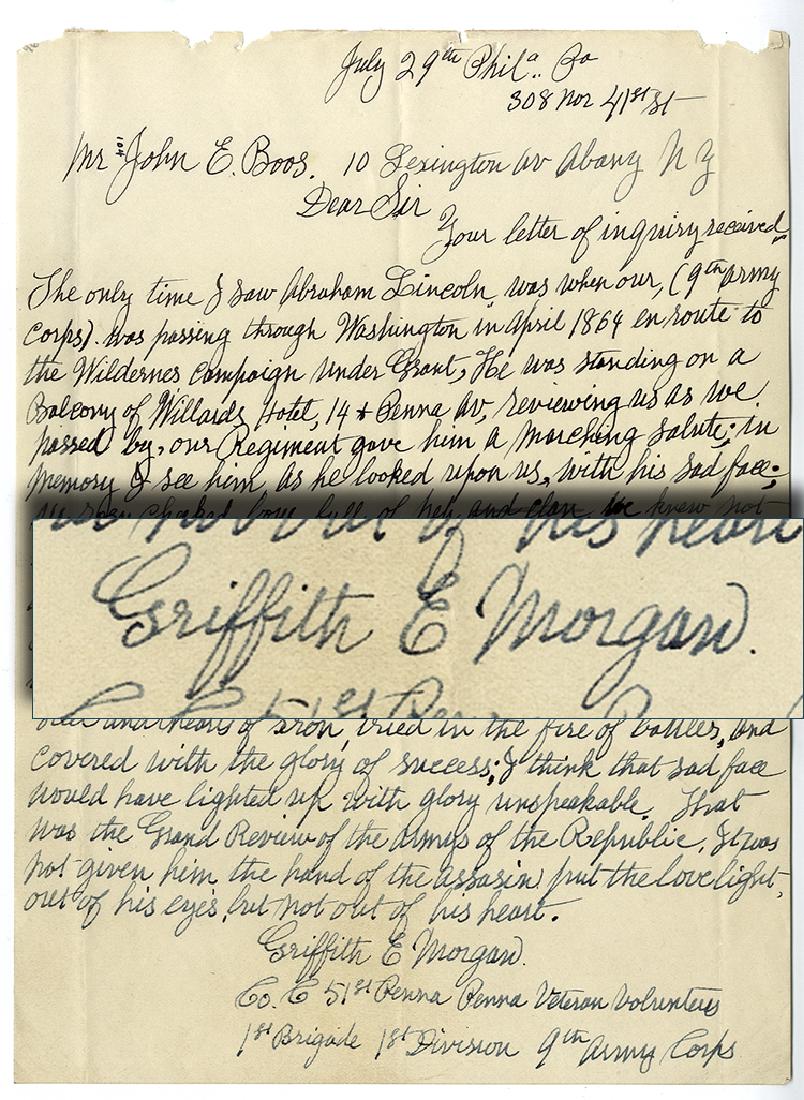 July 29th Phila. Pa
308 Nor 41st St
Mr John E. Boos. 10 Lexington Av Abany N Y
104
Dear Sir
Your letter of inquiry received,
The only time I saw Abraham Lincoln was when our, (9th Army
Corps). was passing through Washington in April 1864 en route to
the Wildernes Campaign under Grant, He was standing on a
Balcony of Willards Hotel, 14 & Penna Av, reviewing us as we
passed by, our Regiment gave him a Marching Salute; in
Memory I see him, as he looked upon us, with his sad face;
boys full of and elan We knew not
his heart
Griffith E Morgan.
51st
and hearts of iron, tried in the fire of battles, and
covered with the glory of success; I think that sad face
would have lighted up with glory unspeakable. That
was the Grand Review of the Armys of the Republic, It was
not given him, the hand of the assasin put the love light,
out of his eyes, but not out of his heart.
Griffith E Morgan.
Co. E 51st Penna Penna Veteran Volunteers
1st Brigade 1st Division 9th Army Corps